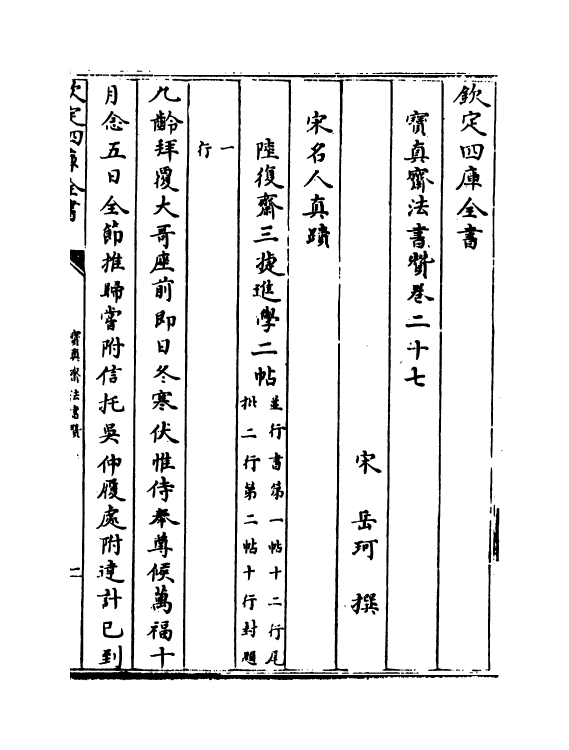 欽定四庫全書
寶真齋法書贊卷二十七
宋 岳珂 撰
宋名人真蹟
陸復齋三捷進學二帖
並行書第一帖十二行尾
批二行第二帖十行封題
一
行
九齡拜覆大哥座前即日冬寒伏惟侍奉尊候萬福十
月念五日全節推歸嘗附信托吳仲履處附達計已到
欽定四庫全書
寶真齋法書贊